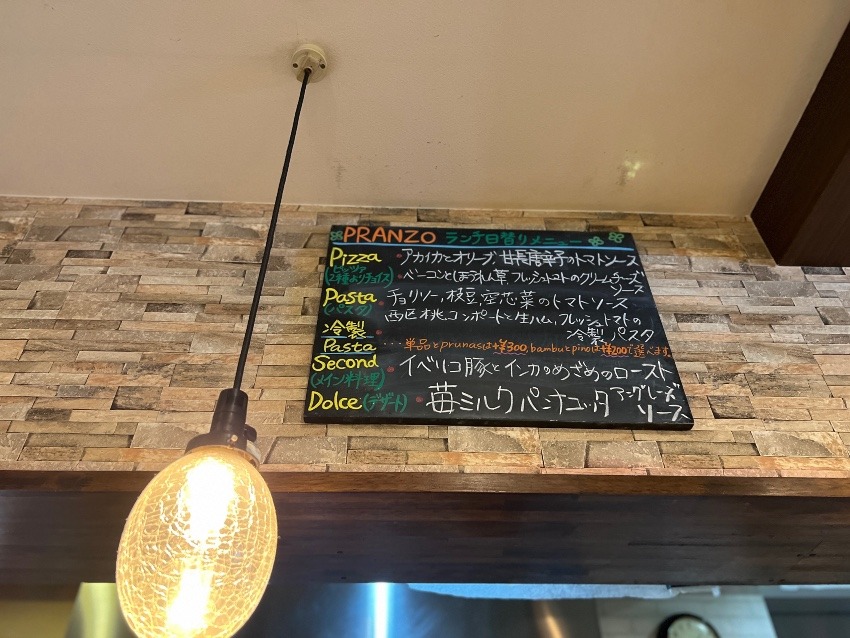 PRANZO ランチ日替りメニュー
Pizza ・アカイカとオリーブ、甘長唐辛子のトマトソース
(ピッツァ 2種よりチョイス) ・ベーコンとほうれん草、フレッシュトマトのクリームチーズソース
Pasta ・チョリソー、枝豆、空芯菜のトマトソース
(パスタ)
冷製 西区桃、コンポートと生ハム、フレッシュトマトの
Pasta 冷製パスタ
・・・単品とprunasは+¥300、bambuとpinoは+¥200で選べます。
Second ・イベリコ豚とインカのめざめのロースト
(メイン料理)
Dolce (デザート) ・苺ミルクパンナコッタ アングレーズソース